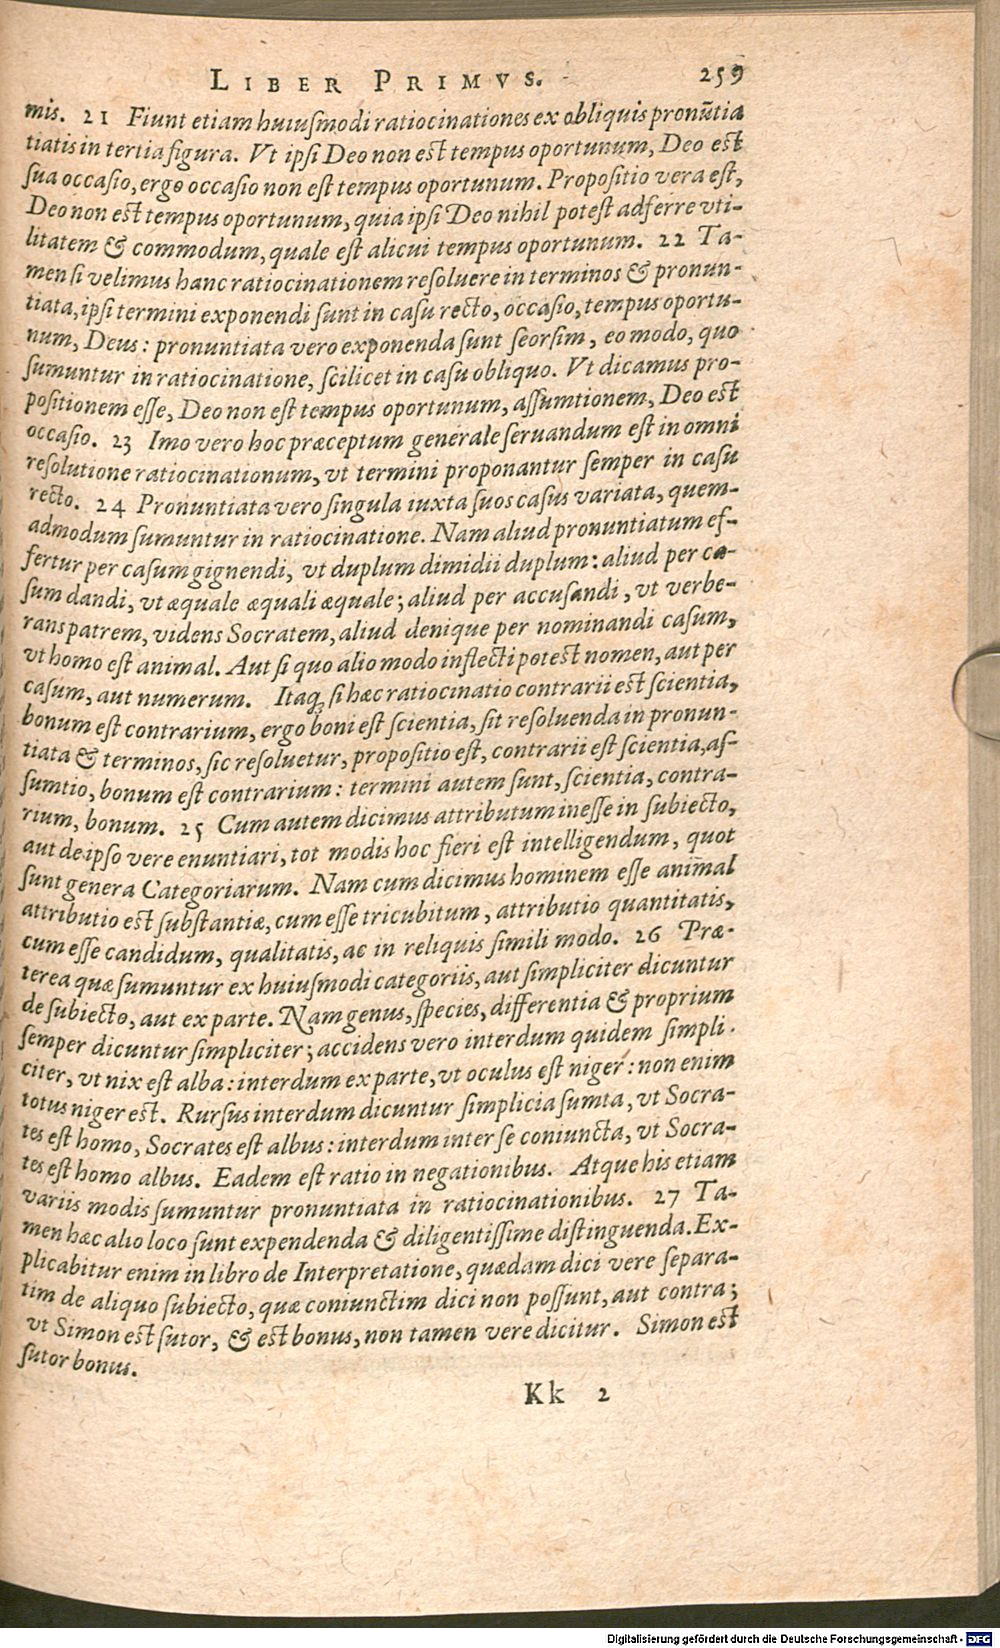 LIBER PRIMVS. 259
mis. 21 Fiunt etiam huiusmodi ratiocinationes ex obliquis pronūtia
tiatis in tertia figura. Vt ipsi Deo non est tempus oportunum, Deo est
sua occasio, ergo occasio non est tempus oportunum. Propositio vera est,
Deo non est tempus oportunum, quia ipsi Deo nihil potest adferre vti-
litatem & commodum, quale est alicui tempus oportunum. 22 Ta-
men si velimus hanc ratiocinationem resoluere in terminos & pronun-
tiata, ipsi termini exponendi sunt in casu recto, occasio, tempus oportu-
num, Deus: pronuntiata vero exponenda sunt seorsim, eo modo, quo
sumuntur in ratiocinatione, scilicet in casu obliquo. Vt dicamus pro-
positionem esse, Deo non est tempus oportunum, assumtionem, Deo est
occasio. 23 Imo vero hoc præceptum generale seruandum est in omni
resolutione ratiocinationum, vt termini proponantur semper in casu
recto. 24 Pronuntiata vero singula iuxta suos casus variata, quem-
admodum sumuntur in ratiocinatione. Nam aliud pronuntiatum ef-
fertur per casum gignendi, vt duplum dimidii duplum: aliud per ca-
sum dandi, vt æquale æquali æquale; aliud per accusandi, vt verbe-
rans patrem, videns Socratem, aliud denique per nominandi casum,
vt homo est animal. Aut si quo alio modo inflecti potest nomen, aut per
casum, aut numerum. Itaq; si hæc ratiocinatio contrarii est scientia,
bonum est contrarium, ergo boni est scientia, sit resoluenda in pronun-
tiata & terminos, sic resoluetur, propositio est, contrarii est scientia, as-
sumtio, bonum est contrarium: termini autem sunt, scientia, contra-
rium, bonum. 25 Cum autem dicimus attributum inesse in subiecto,
aut de ipso vere enuntiari, tot modis hoc fieri est intelligendum, quot
sunt genera Categoriarum. Nam cum dicimus hominem esse animal
attributio est substantiæ, cum esse tricubitum, attributio quantitatis,
cum esse candidum, qualitatis, ac in reliquis simili modo. 26 Præ-
terea quæ sumuntur ex huiusmodi categoriis, aut simpliciter dicuntur
de subiecto, aut ex parte. Nam genus, species, differentia & proprium
semper dicuntur simpliciter; accidens vero interdum quidem simpli-
citer, vt nix est alba: interdum ex parte, vt oculus est niger: non enim
totus niger est. Rursus interdum dicuntur simplicia sumta, vt Socra-
tes est homo, Socrates est albus: interdum inter se coniuncta, vt Socra-
tes est homo albus. Eadem est ratio in negationibus. Atque his etiam
variis modis sumuntur pronuntiata in ratiocinationibus. 27 Ta-
men hæc alio loco sunt expendenda & diligentissime distinguenda. Ex-
plicabitur enim in libro de Interpretatione, quædam dici vere separa-
tim de aliquo subiecto, quæ coniunctim dici non possunt, aut contra;
vt Simon est sutor, & est bonus, non tamen vere dicitur. Simon est
sutor bonus.
Kk 2
Digitalisierung gefördert durch die Deutsche Forschungsgemeinschaft - DFG